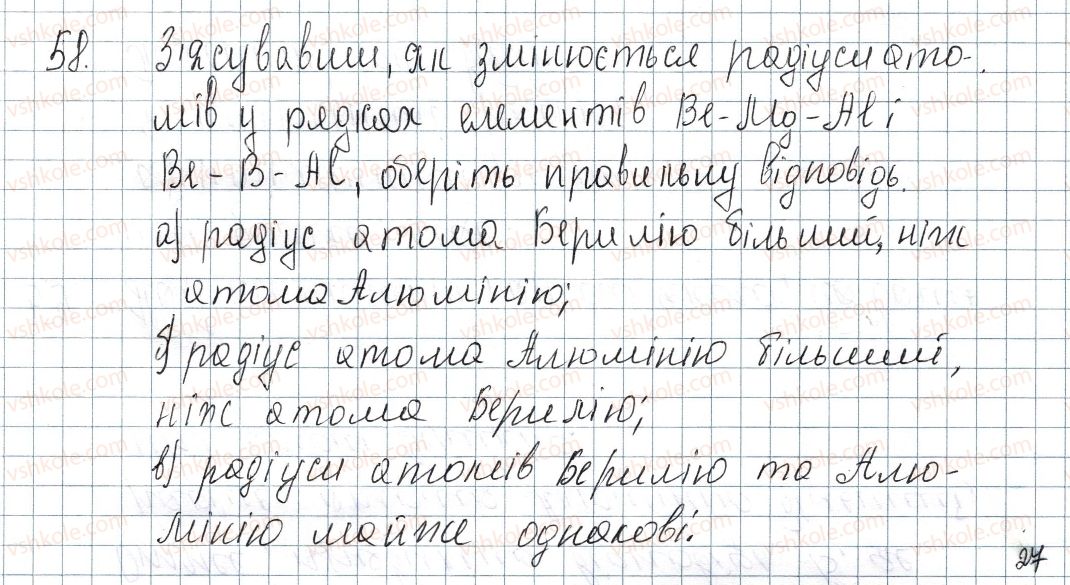 58. З'ясувавши, як змінюється радіуси ато-
мів у рядках елементів Be-Mg-Al і
Be-B-Al, оберіть правильну відповідь.
а) радіус атома Берилію більший, ніж
атома Алюмінію;
б) радіус атома Алюмінію більший,
ніж атома Берилію;
в) радіуси атомів Берилію та Алю-
мінію майже однакові.
27